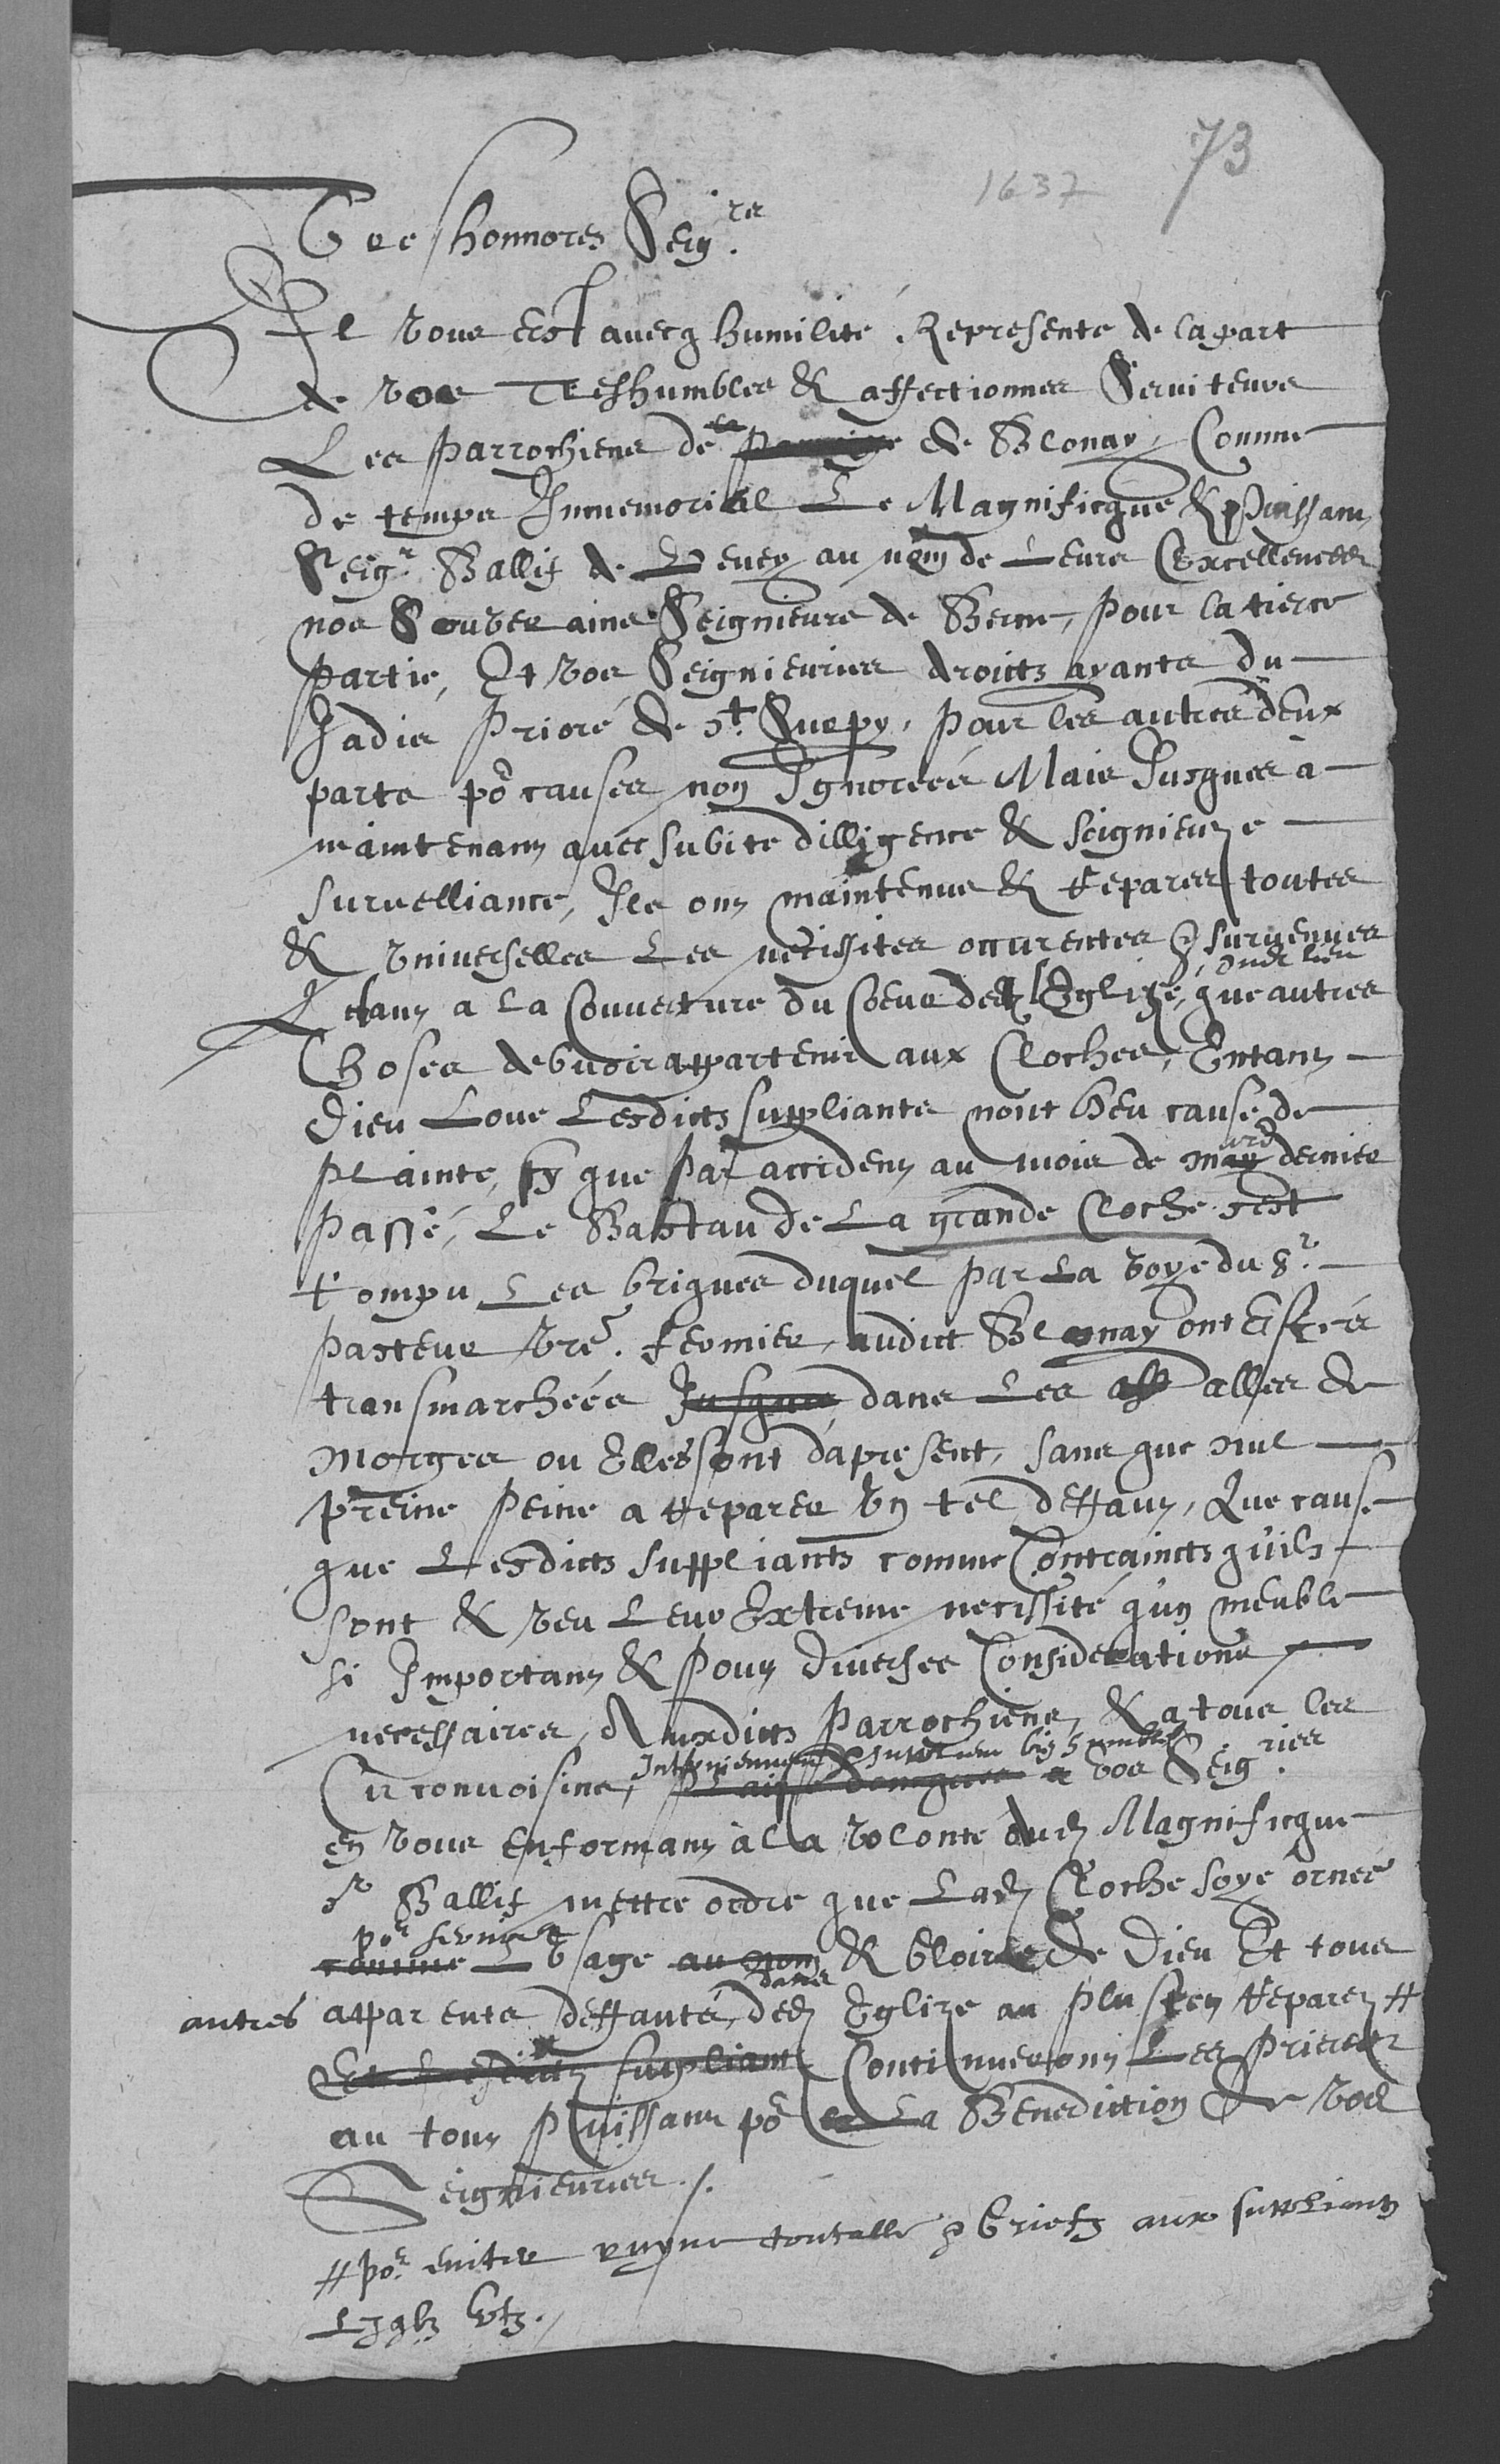 73
1637
Tres honnores Seigrs.
Il vous est avecq humilité Represente de la part
de vos Treshumbles & affectionnes Serviteurs
Les Parrochiens de la de Blonay, Comme
de temps Immemorial Le Magnificque & Puissant
Seigr Ballif de Vevey au nom de Leurs Excellences
nos Souverains Seignieurs de Berne, Pour la tierce
Partie, Et vos Seignieuries droicts ayants du
Jadis Prioré de St. Surpy, Pour les autres deux
parts po causes non Ignorées Mais Jusques à
maintenant avec subite dilligence & seignieuze
survelliance, Ils ont maintenus & reparer toutes
& Universelles Les necissites occurentes & survenues
dudt lieu
tant a la Couverture du Coeur de l'Eglize, que autres
Choses debvoir appartenir aux Cloches, Entant
Dieu Loue Lesdicts suppliants n'ont heu cause de
Plainte, sy que Par accident au mois de may dernier
Passé, Le Battau de La grande Cloche s'est
rompu Les briques duquel par La voye du Sr.
Pasteur vre. fermier audict Blonay ont Estées
transmarchées Jusques dans Les all alles de
Morges ou Elles sont d'apresent, sans que nul
Preine Peine a reparer un tel deffaut, Que cause
que Lesdicts suppliants comme Contraincts qu'ils
sont & veu Leur Extreme necissité qu'un meuble
si Important & Pour diverses Considerations
necessaires, Auxdicts Parrochiens, & a tous les
Circonvoisins, a vos Seigries.
en vous enformant à la volonte dud Magnificque
Sr Ballif mettre ordre que Lad Cloche soye ornée
por servir a
comme L usage au nom & Gloire de Dieu Et tous
dans
autres apparents deffauts, ded Eglize au Plustost reparer #
Et Lesdicts suppliants Continueront Les Prieres
au tout Puissant po La Benediction de vos
Seignieuries ./.
# por. eviter ruyne toutalle & Griefz aux suppliants